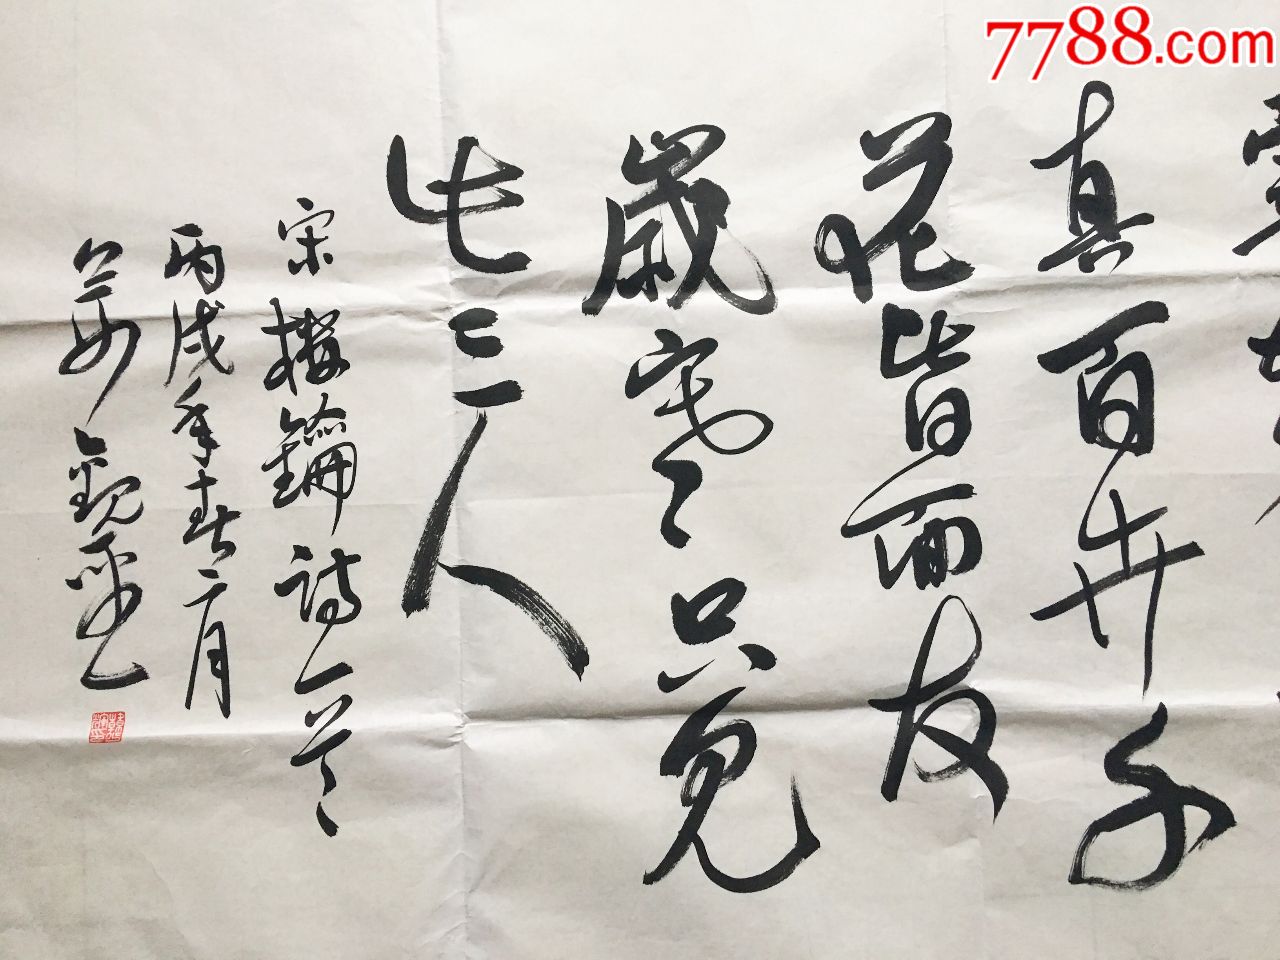 7788.com
真百卉千
花皆面友
歲寒只見
此三人
宋樓鑰詩一首
丙戌年春二月